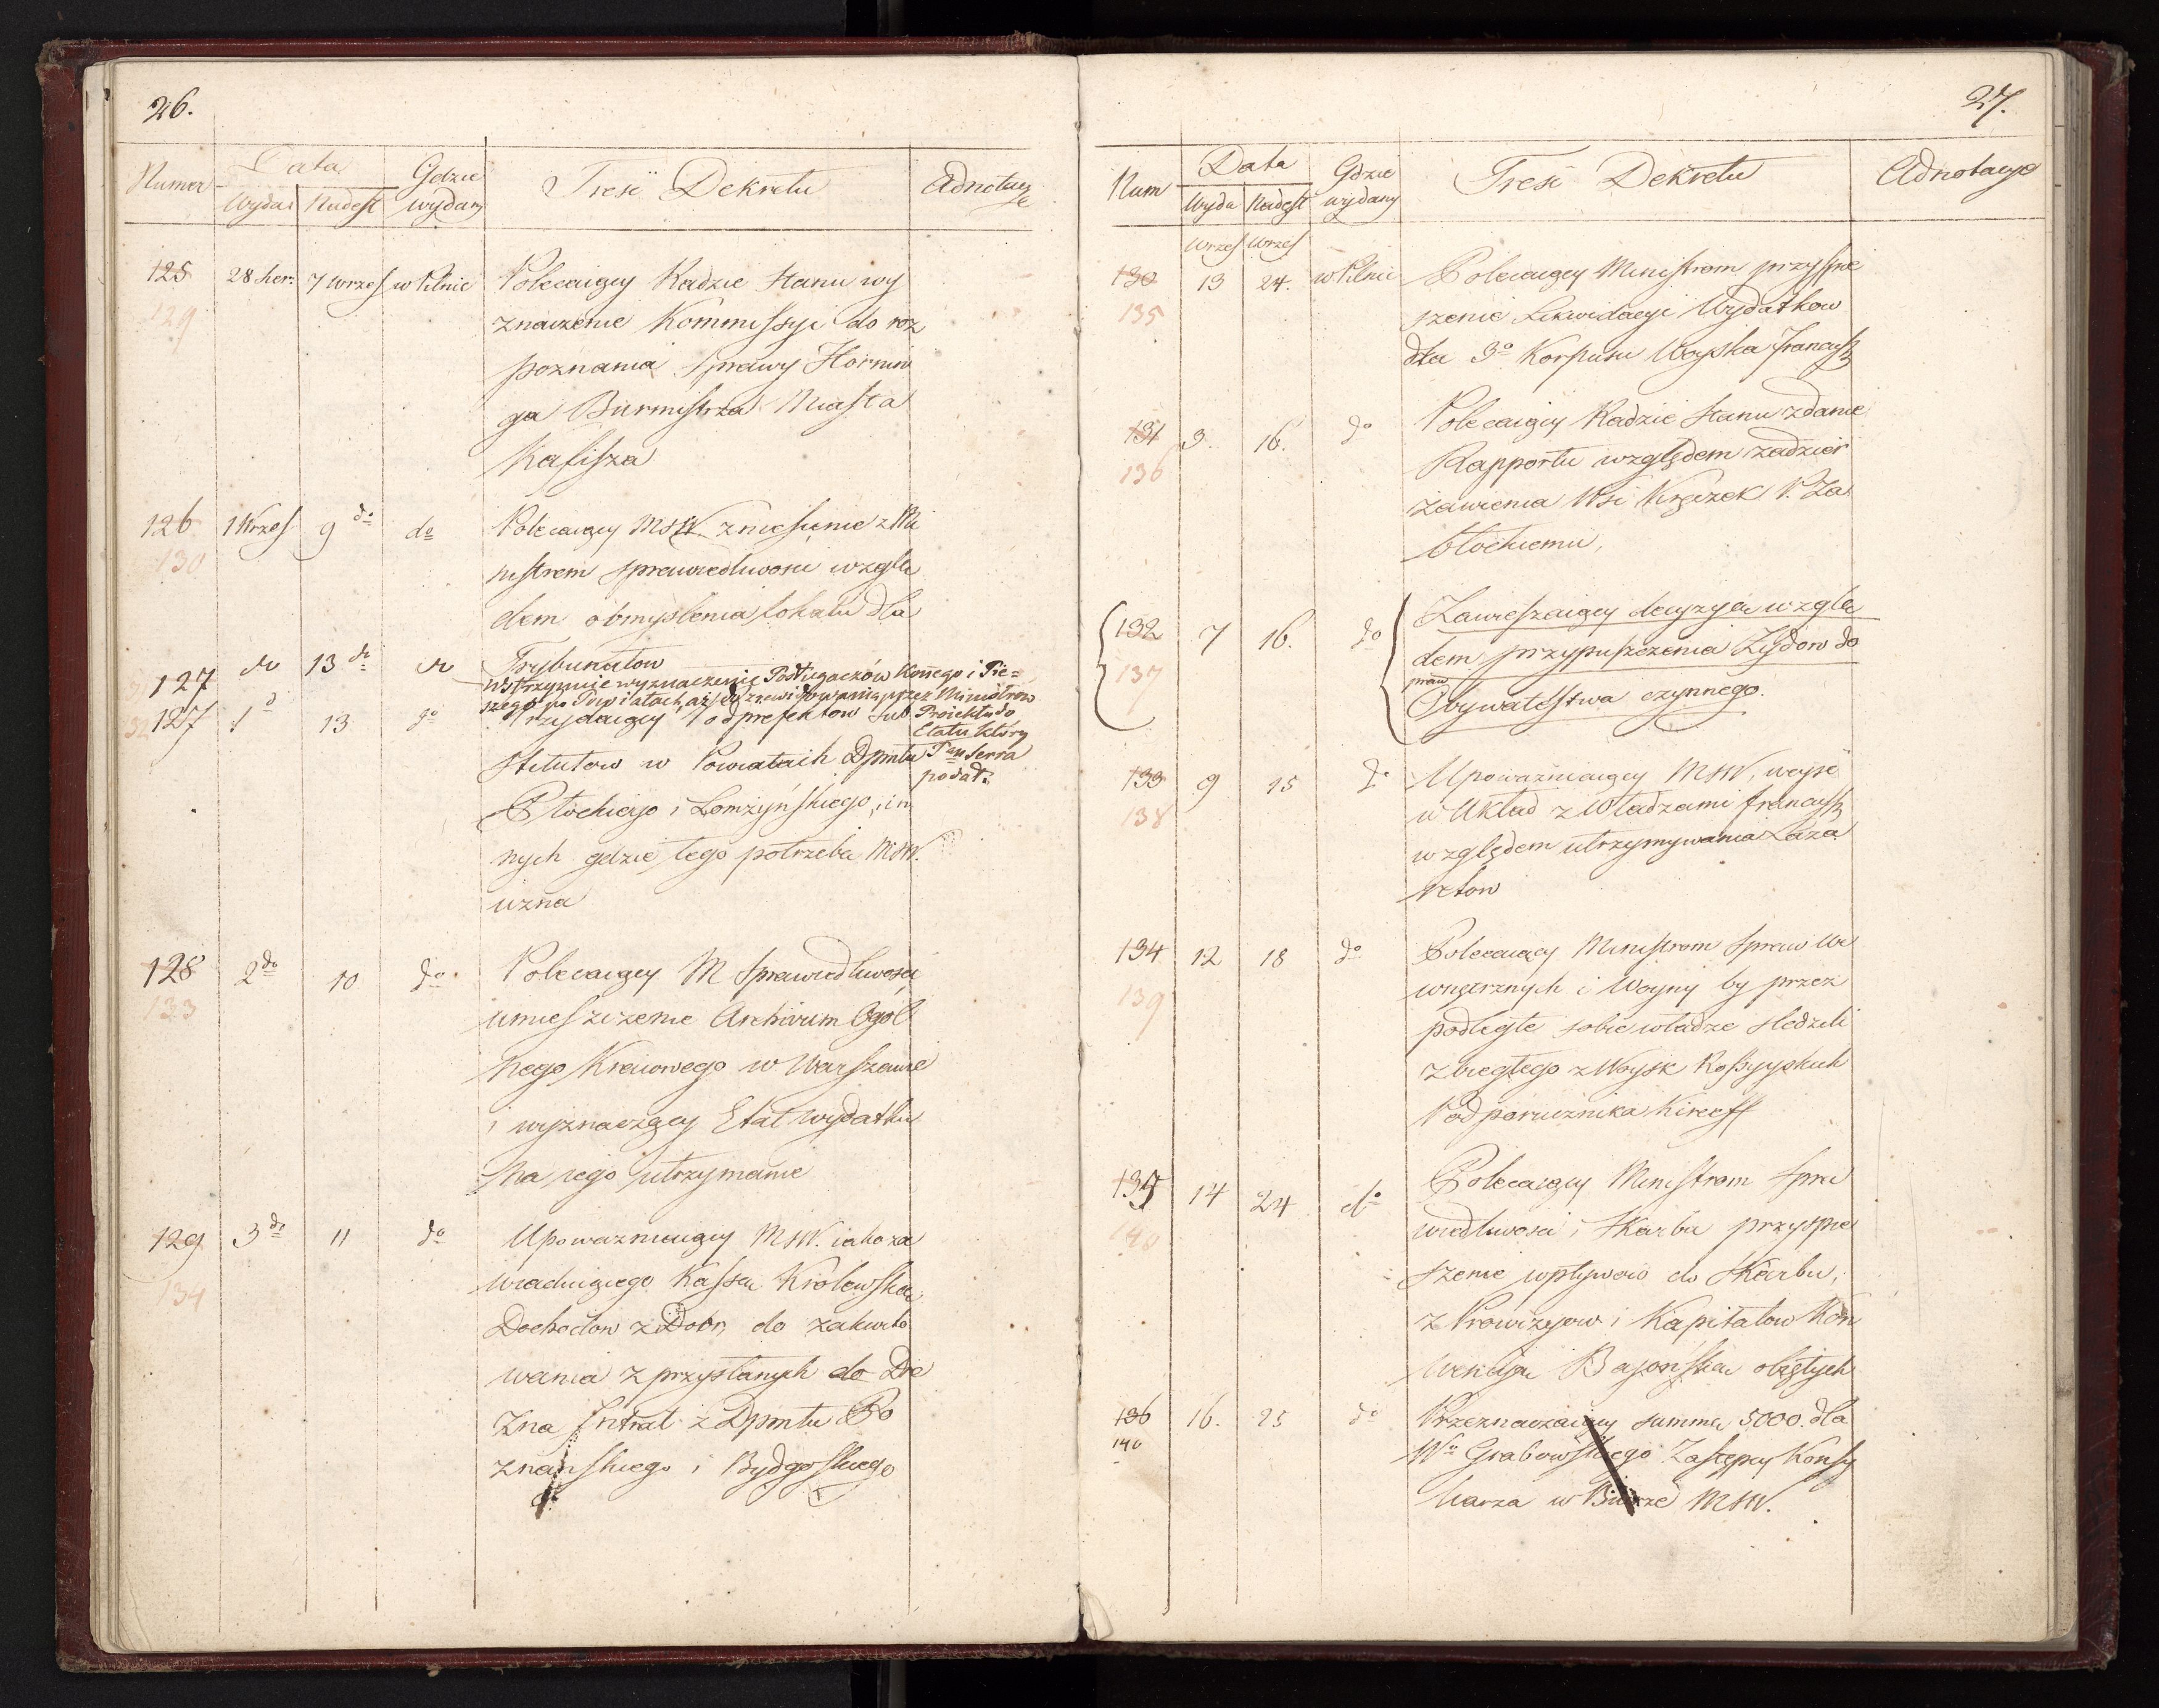 26.
Numer Data Gdzie wydany Treść Dekretu Adnotacye
Wydan Nadesł
125 28 Sier: 7 Wrześ w Pilnic Polecaiący Radzie Stanu wy
129
znaczenie Kommissyi do roz
poznania Sprawy Hornun
ga Burmistrza Miasta
Kalisza
126 1 Wrześ 9 do do Polecaiący MSW. zniesienie z Mi
130
nistrem Sprawiedliwosci wzglę
dem obmyslenia lokalu dla
Trybunałow
127 do 13 do do Wstrzymuie wyznaczenie Podługaczów Konnego i Pie=
szego po Powiatach, aż do zrewidowania przez Ministrów
Proiektu do
Etatu który
Pan Serra
podał.
127 1 d 13 do Przydaiący Podprefektow Sub
stitutow w Powiatach Dpmtu
Płockiego i Łomżyńskiego, in
nych gdzie tego potrzeba MSW.
uzna
128 2 do 10 do Polecaiący M Sprawiedliwosci
133
umieszczenie Archivum Ogól
nego Kraiowego w Warszawie
i wyznaczący Etat wydatku
na iego utrzymanie
129 3 do 11 do Upowazniaiący MSW. iako za
134
wiaduiącego Kassą Krolewską
Dochodow z Dobr, do zakwito
wania z przysłanych do Dre
zna Intrat z Dpmtu Po
znańskiego i Bydgoskiego
27.
Num Data Gdzie wydany Treść Dekretu Adnotacye
Wyda Nadesł
Wrześ Wrześ
130 13 24. w Pilnic Polecaiący Ministrom przyspie
135
szenie Likwidacyi Wydatkow
dla 3o Korpusu Woyska Francusk
131 3. 16. do Polecaiący Radzie Stanu zdanie
136
Rapportu względem zadzier
zawienia Wsi Krączek P. Za
błockiemu,
132 7 16. do Zawieszaiący decyzyą wzglę
137
dem przypuszczenia Zydow do
praw
Obywatelstwa czynnego.
133 9 15 do Upowazniaiący MSW, weyść
138
w Układ z Władzami francusk
względem utrzymywania Laza
retow
134 12 18 do Polecaiący Ministrom Spraw We
139
wnętrznych i Woyny by przez
podległe sobie władze sledzili
zbiegłego z Woysk Rossyyskich
Podporucznika Kireeff
135 14 24 do Polecaiący Ministrom Spra
140
wiedliwosci i Skarbu przyspie
szenie wpływow do Skarbu,
z Prowizyow i Kapitałow Kon
wencyą Bajońską obiętych
136 16. 25 do Przeznaczaiący summę 5000. dla
140
Wo Grabowskiego Zastępcy Konsy
liarza w Biurze MSW.